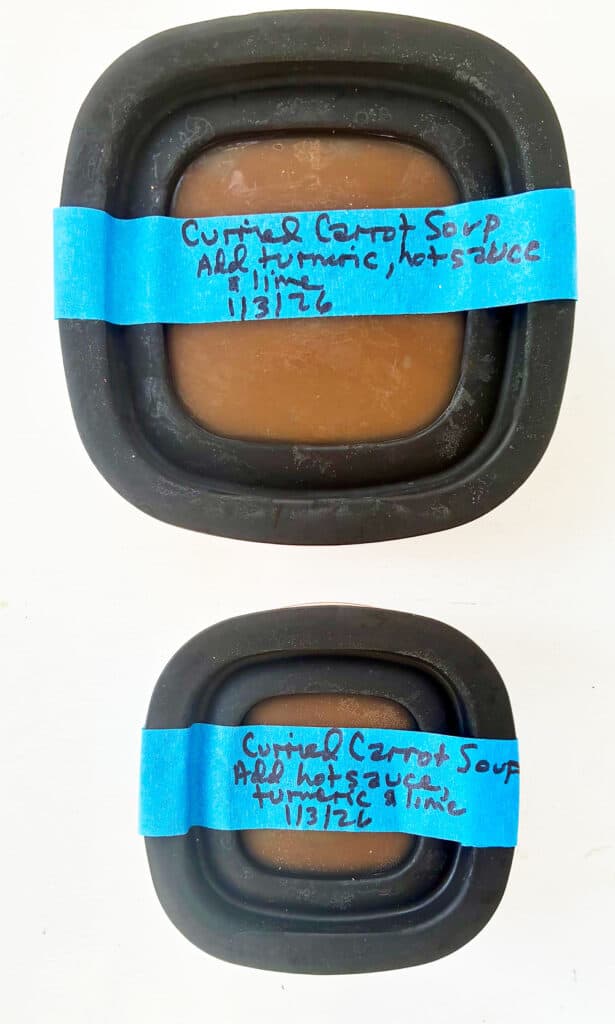 Curried Carrot Soup
Add turmeric, hot sauce
& lime
1/3/26
Curried Carrot Soup
Add hot sauce,
turmeric & lime
1/3/26